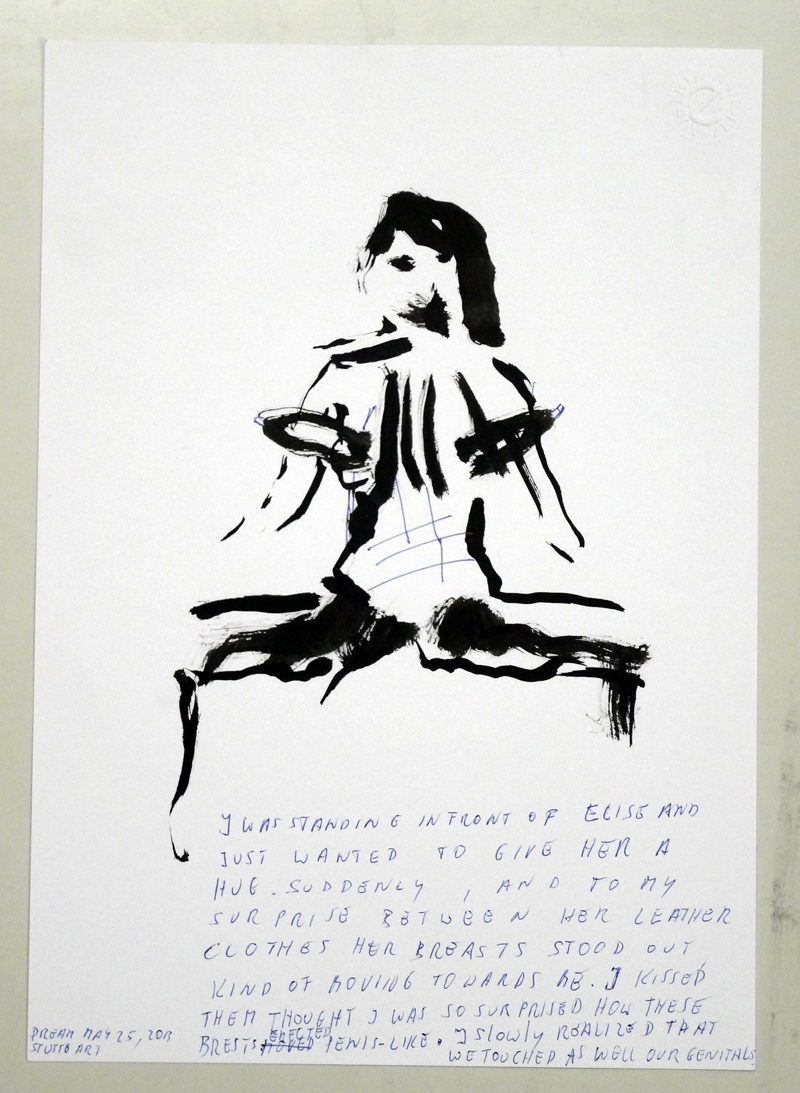 I WAS STANDING IN FRONT OF ELISE AND
JUST WANTED TO GIVE HER A
HUG. SUDDENLY, AND TO MY
SURPRISE BETWEEN HER LEATHER
CLOTHES HER BREASTS STOOD OUT
KIND OF MOVING TOWARDS ME. I KISSED
THEM THOUGHT I WAS SO SURPRISED HOW THESE
BRESTS ERECTED PENIS-LIKE. I SLOWLY REALIZED THAT
WE TOUCHED AS WELL OUR GENITALS
DREAM MAY 25, 2013
STUTTGART